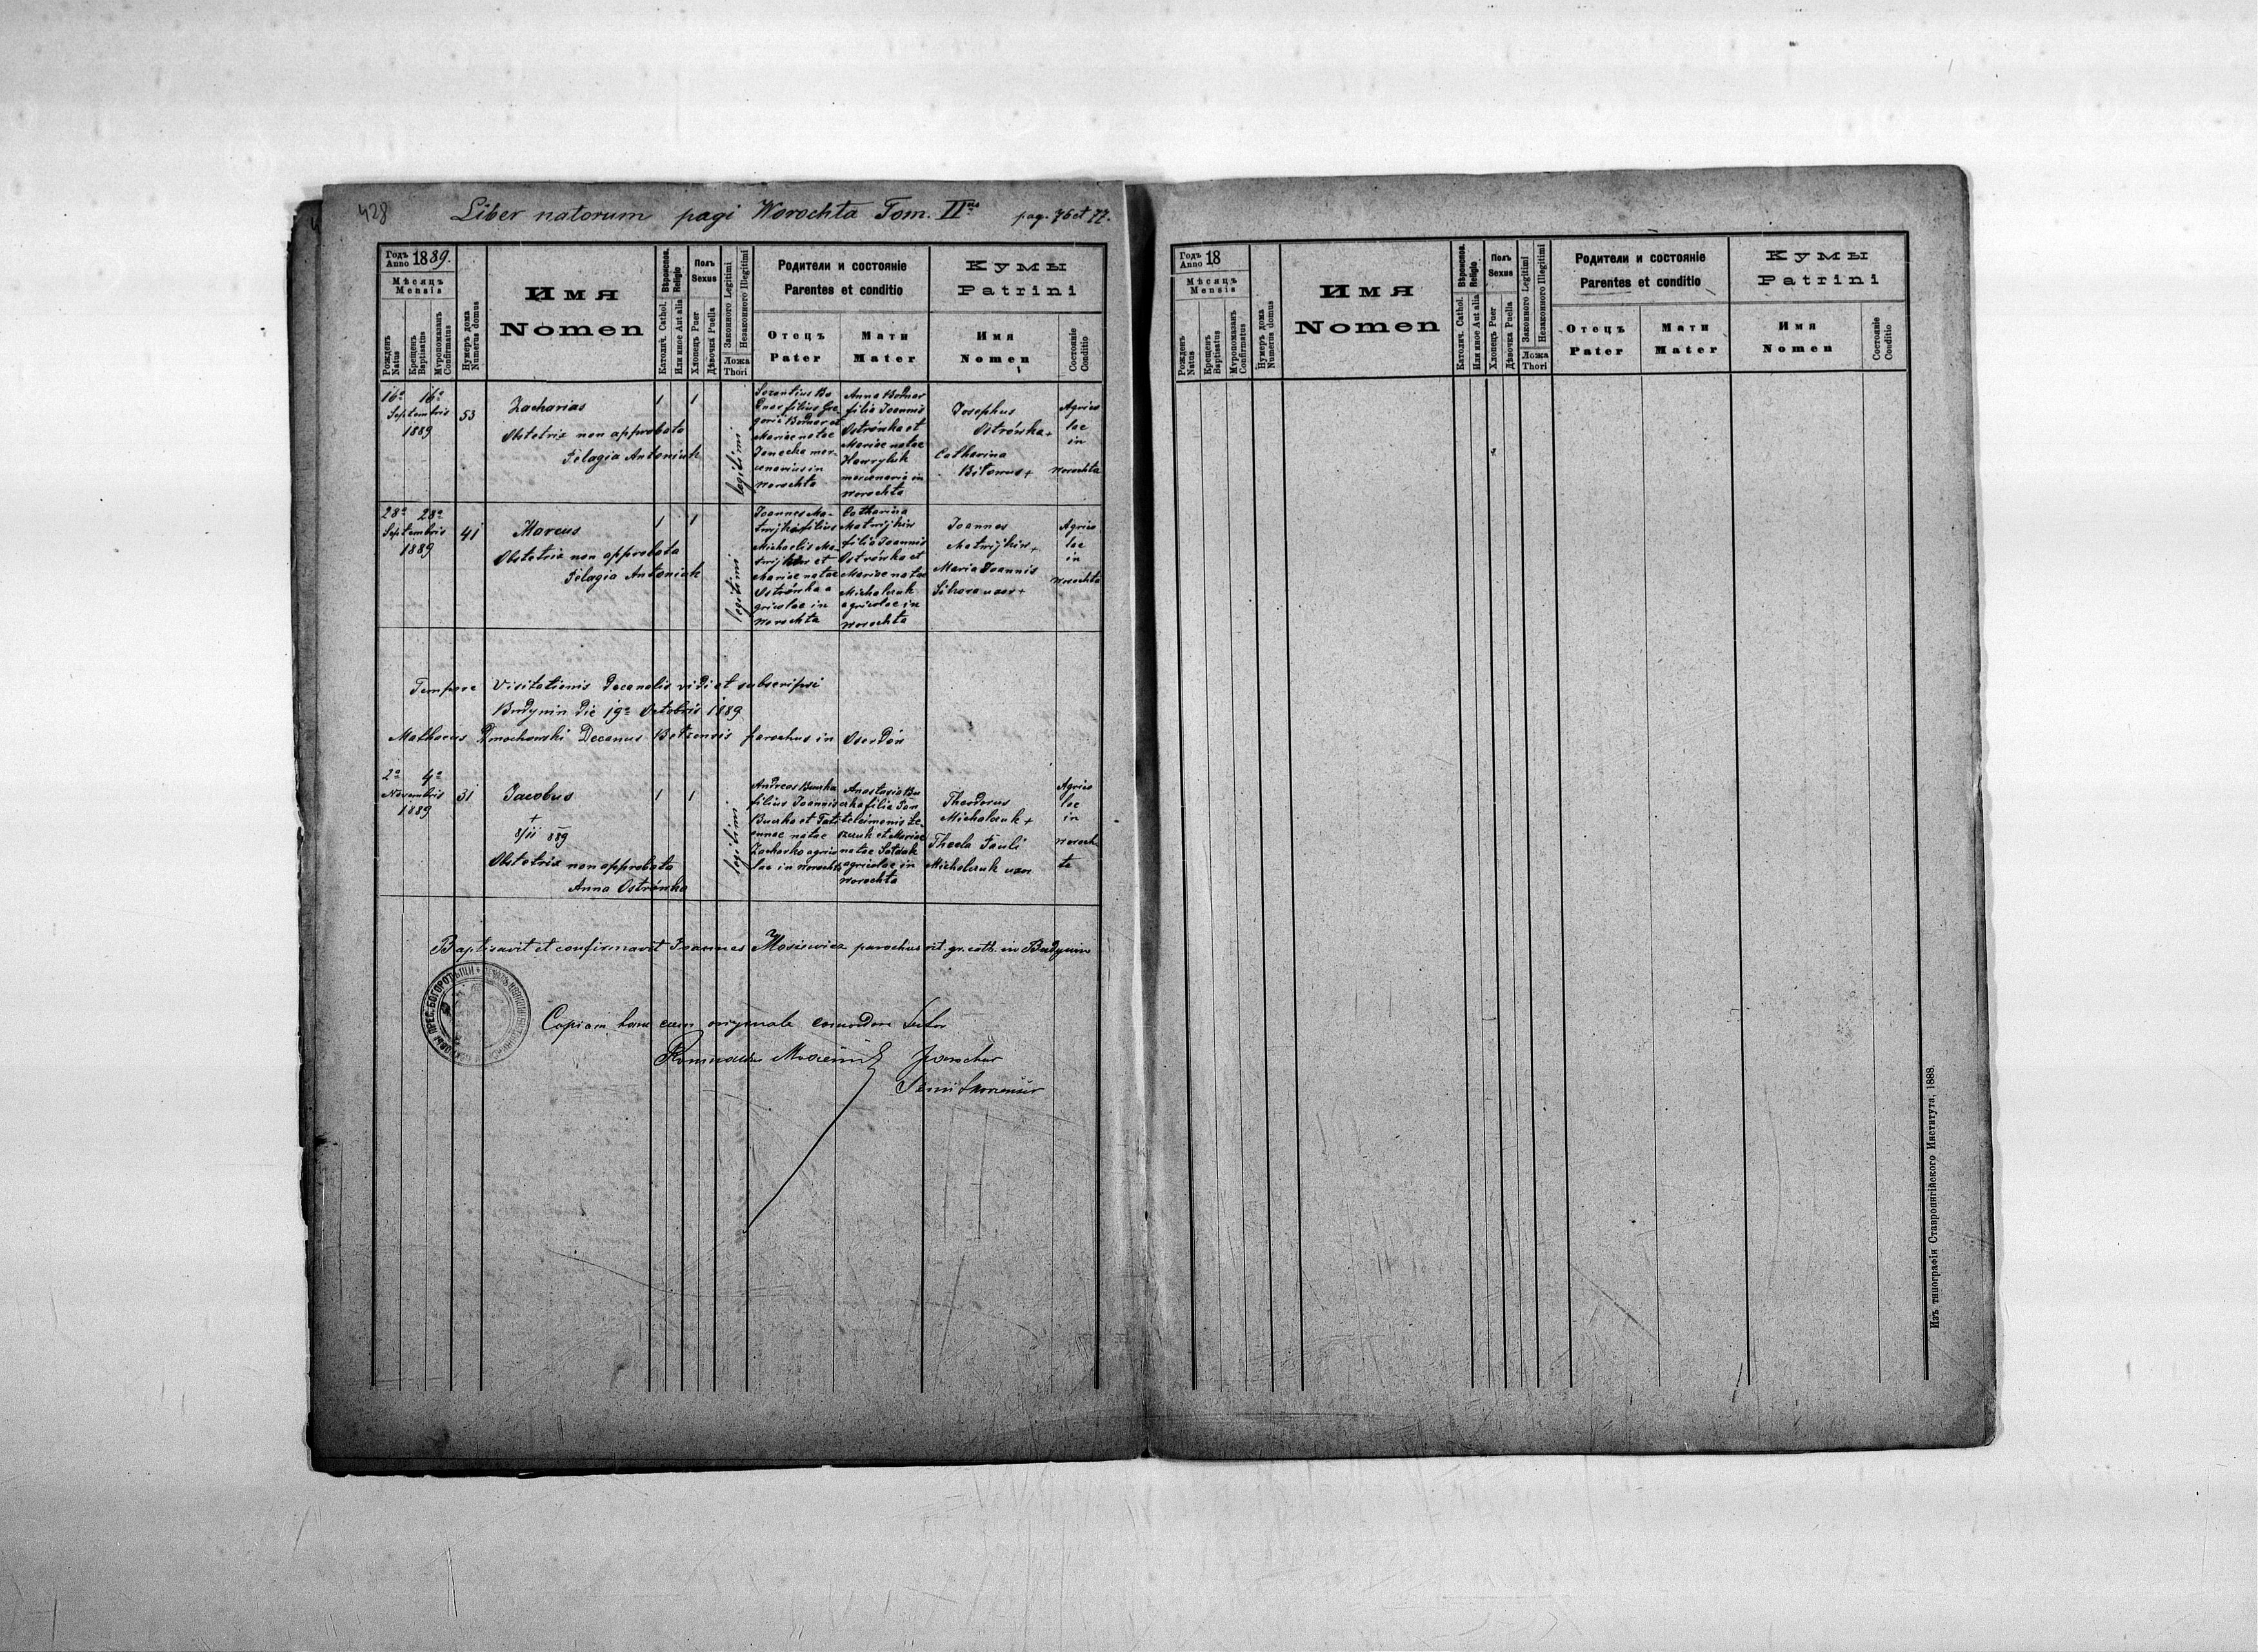 428
Liber natorum pagi Worochta Tom. II pag. 76 et 77.
Годъ Anno 1889.
Мѣсяцъ
Mensis
Рожденъ Natus
Крещенъ Baptisatus
Мѵропомазанъ Confirmatus
Нумеръ дома Numerus domus
Имя
Nomen
Вѣроиспов. Religio
Католич. Cathol.
Или иное Aut alia
Полъ
Sexus
Хлопець Puer
Дѣвочка Puella
Законного Legitimi
Незаконного Illegitimi
Ложа
Thori
Родители и состояніе
Parentes et conditio
Отець
Pater
Мати
Mater
Кумы
Patrini
Имя
Nomen
Состояніе
Conditio
16a 16a
Septembris
1889
53
Zacharias
Obstetrix non approbata
Pelagia Antoniuk
1
1
legitimi
filius Gre
gorii Bodnar et
Mariae natae
mer
cenarius in
Worochta
Anna Bodnar
filia Joannis
Ostrówka et
Mariae natae
Hawryluk
mercenaria in
Worochta
Josephus
Ostrówka +
Catharina
Agrico
lae
in
Worochta
28a 28a
Septembris
1889
41
Marcus
Obstetrix non approbata
Pelagia Antoniuk
1
1
legitimi
Joannes Ma-
filius
Michaelis Ma-
et
Mariae natae
Ostrówka a
gricolae in
Worochta
Catharina
Matwijkiw
filia Joannis
Ostrówka et
Mariae natae
Michalczuk
agricolae in
Worochta
Joannes
Matwijkiw +
Maria Joannis
uxor +
Agrico
lae
in
Worochta
Tempore Visitationis Decanalis vidi et subscripsi
Budynin die 19a Octobris 1889
Mathaeus Decanus Belzensis parochus in Oserdów
2a 4a
Novembris
1889
31
Jacobus
+
8/11 889
Obstetrix non approbata
Anna Ostrówka
1
1
legitimi
Andreas
filius Joannis
et Tati
annae natae
Zacharko agrico
lae in Worochta
Anastasia Bu
filia Pan
teleimonis
et Mariae
natae
agricolae in
Worochta
Theodorus
Michalczuk +
Thecla Pauli
Michalczuk uxor
Agrico
lae
in
Woroch
ta
Baptisavit et confirmavit Joannes Mosiewicz parochus rit. gr. cath. in Budynin
ПРЕС. БОГОРОДИЦИ
Copiam hanc cum originale
parochus
Годъ Anno 18
Мѣсяцъ
Mensis
Рожденъ Natus
Крещенъ Baptisatus
Мѵропомазанъ Confirmatus
Нумеръ дома Numerus domus
Имя
Nomen
Вѣроиспов. Religio
Католич. Cathol.
Или иное Aut alia
Полъ
Sexus
Хлопець Puer
Дѣвочка Puella
Законного Legitimi
Незаконного Illegitimi
Ложа
Thori
Родители и состояніе
Parentes et conditio
Отець
Pater
Мати
Mater
Кумы
Patrini
Имя
Nomen
Состояніе
Conditio
Изъ типографіи Ставропигійского Института, 1888.